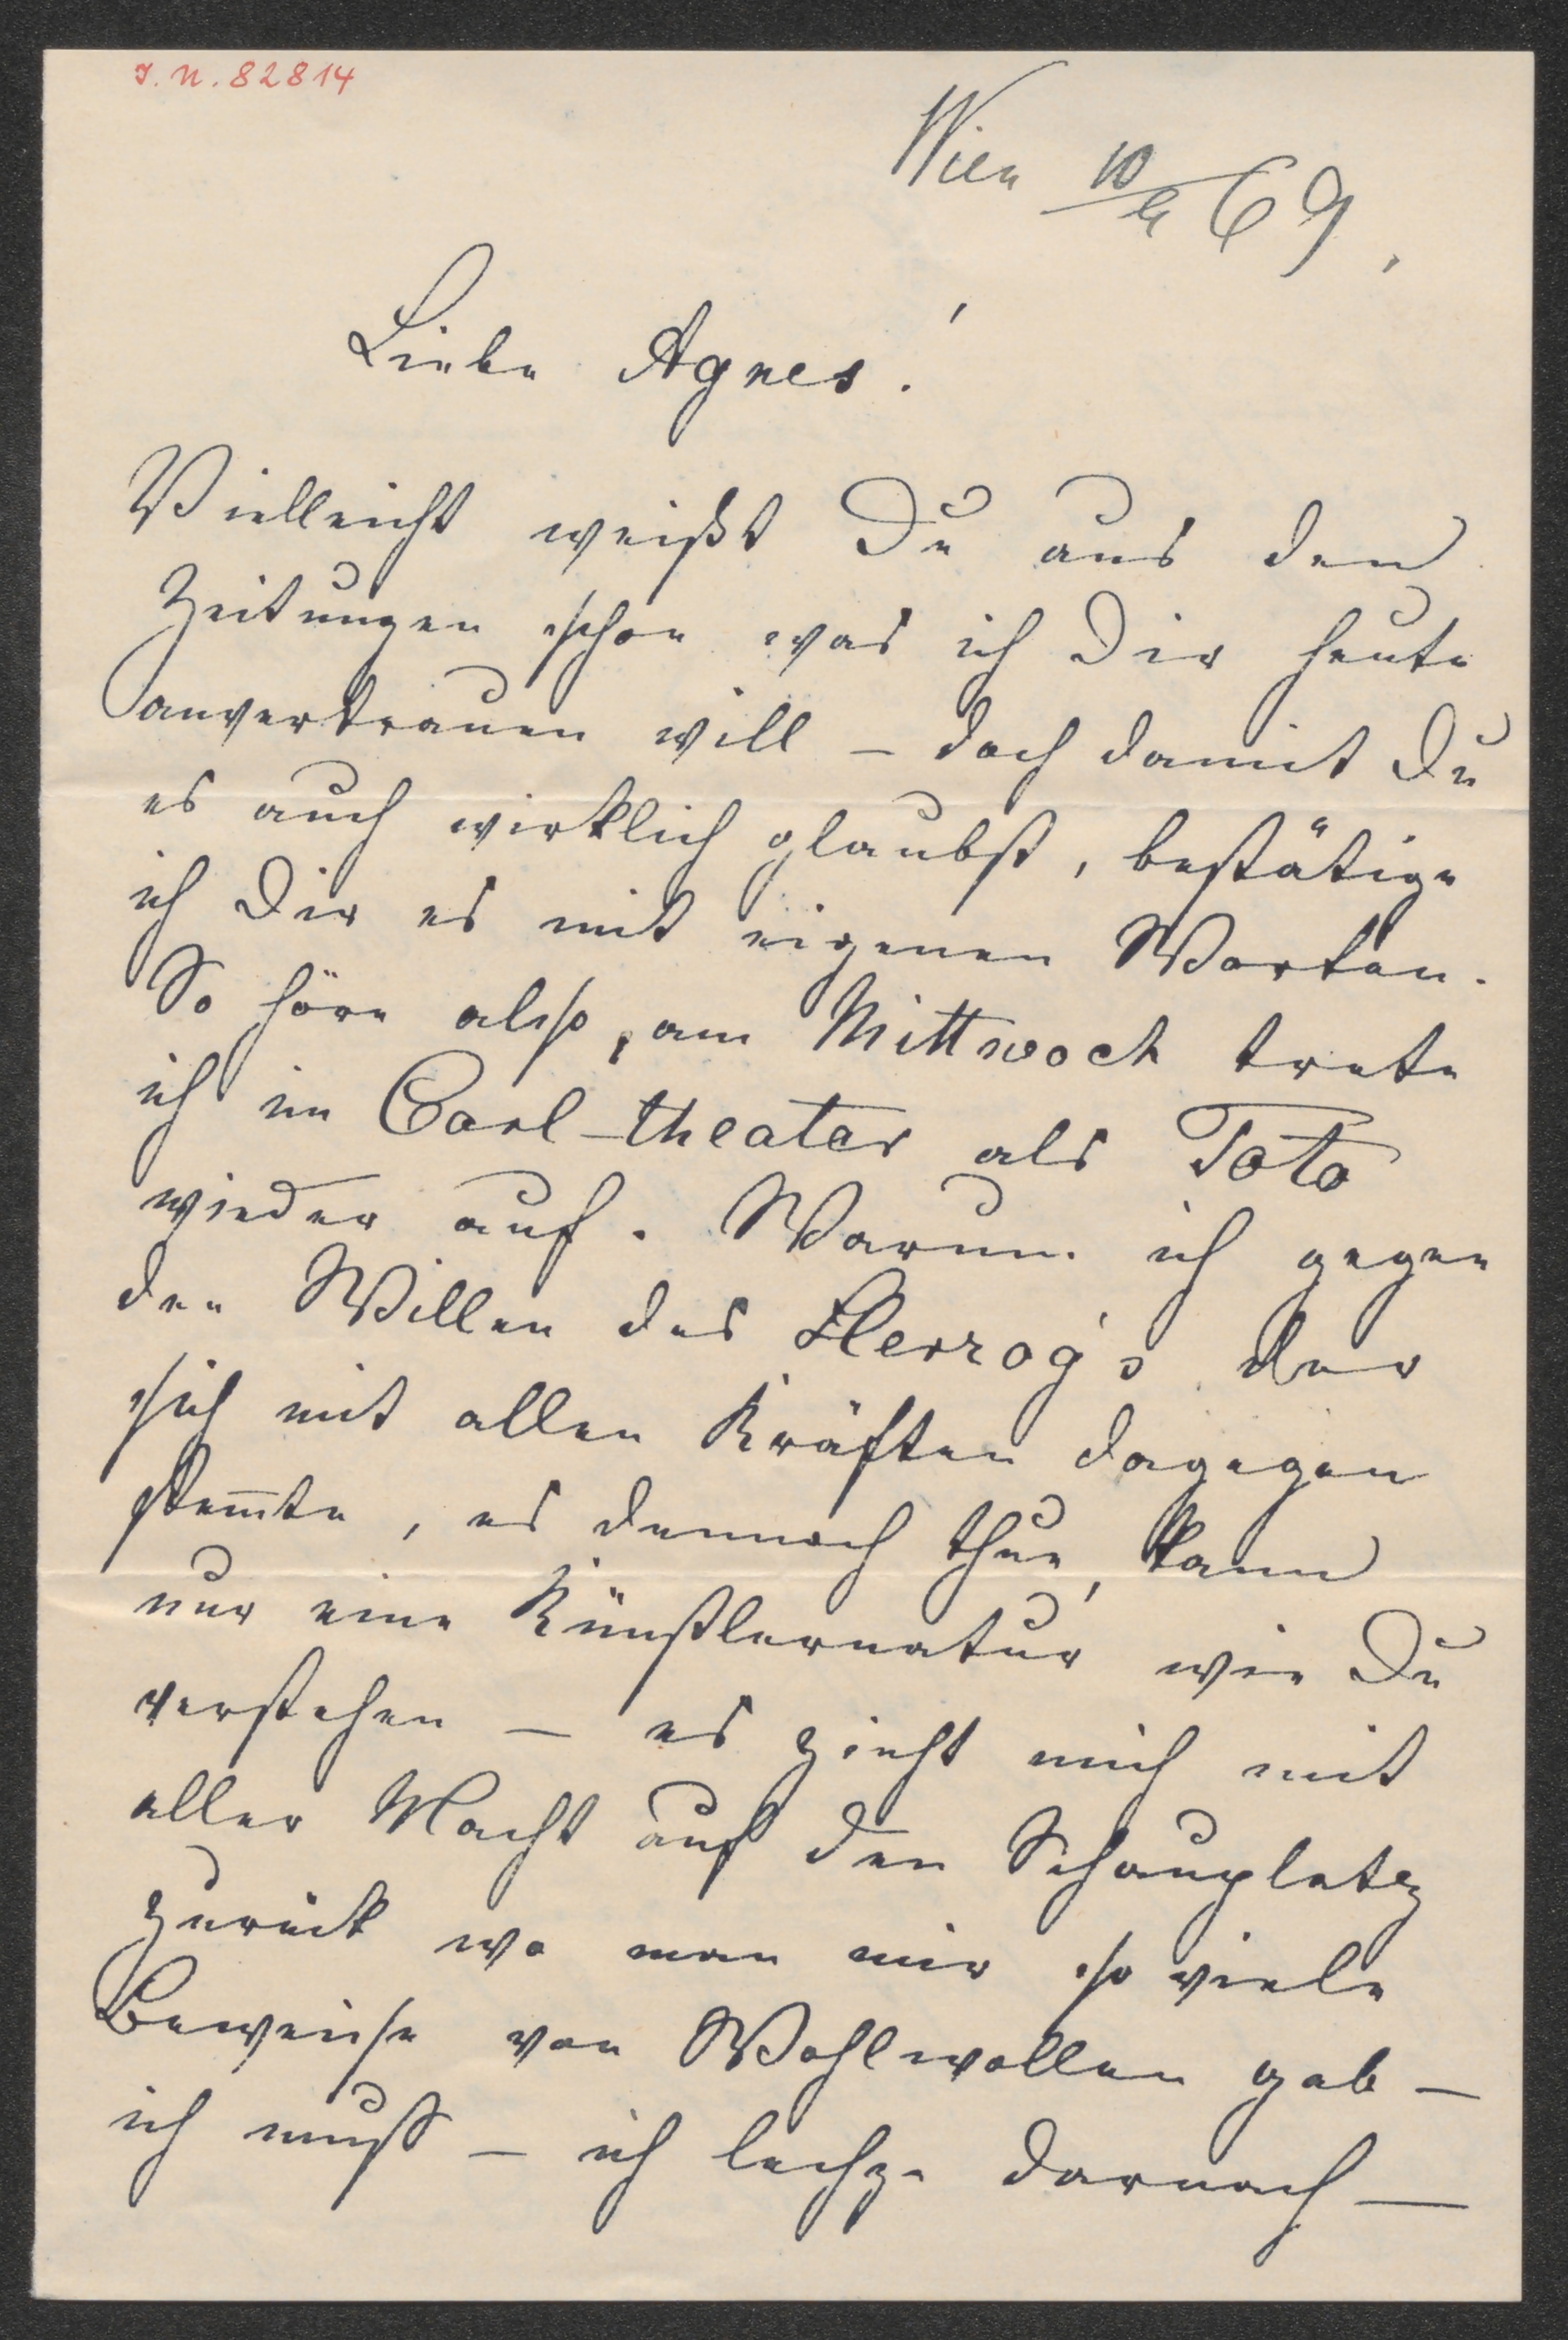 J. N. 82814
Wien 10/4 69.
Liebe Agnes!
Vielleicht weißt Du aus den
Zeitungen schon was ich Dir heute
anvertrauen will – doch damit Du
es auch wirklich glaubst, bestätige
ich Dir es mit eigenen Worten.
So höre also, am Mittwoch trete
ich im Carl-theater als Toto
wieder auf. Warum ich gegen
den Willen des Herzog's der
sich mit allen Kräften dagegen
stem̅te, es dennoch thue, kann
nur eine Künstlernatur wie Du
verstehen – es zieht mich mit
aller Macht auf den Schauplatz
zurück wo man mir so viele
Beweise von Wohlwollen gab –
ich muß – ich lechze darnach –